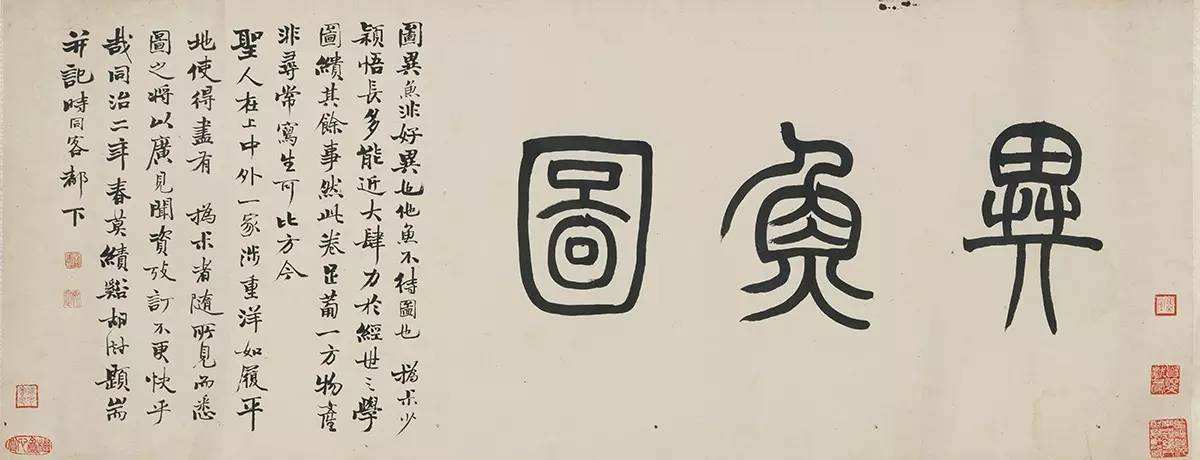 異魚圖
圖異魚非好異也他魚不待圖也 撝尗少
穎悟長多能近大肆力於經世之學
圖繢其餘事然此卷足葡一方物產
非尋常寫生可比方今
聖人在上中外一家涉重洋如履平
地使得盡有 撝尗者隨所見而悉
圖之將以廣見聞資攷訂不更快乎
哉同治二年春莫績谿胡澍題耑
并記時同客都下